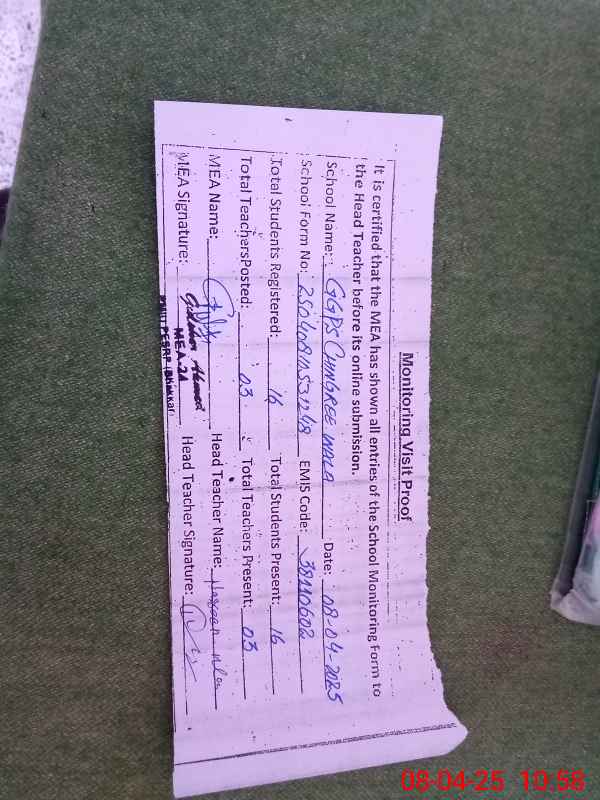 Monitoring Visit Proof
It is certified that the MEA has shown all entries of the School Monitoring Form to
the Head Teacher before its online submission.
School Name: GGPS CHINGREE WALA Date: 08-04-2025
School Form No: EMIS Code: 38110602
Total Students Registered: 16 Total Students Present: 16
Total TeachersPosted: 03 Total Teachers Present: 03
MEA Name: Head Teacher Name:
MEA Signature: Head Teacher Signature:
Ahmed
MEA-24
08-04-25 10:58